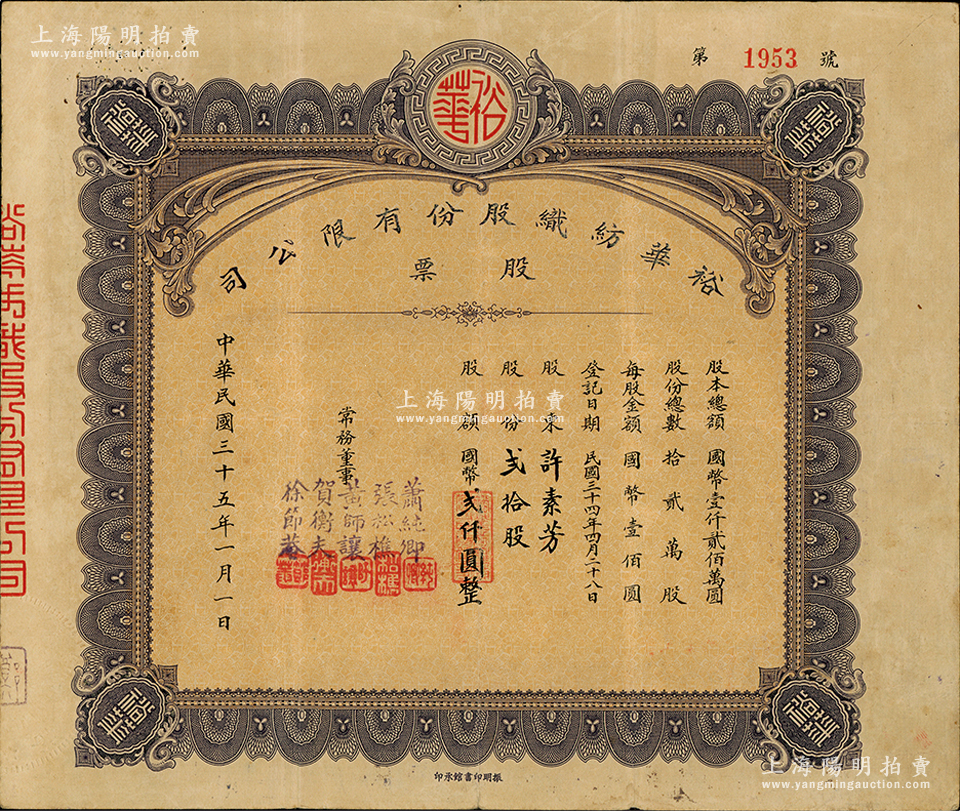 上海陽明拍賣
www.yangmingauction.com
第 1953 號
裕華
裕華紡織股份有限公司
股票
股本總額 國幣壹仟貳佰萬圓
股份總數 拾貳萬股
每股金額 國幣壹佰圓
登記日期 民國三十四年四月二十八日
股東 許素芳
股份 弍拾股
股額 國幣弍仟圓整
常務董事
蕭純卿
張松樵
黃師讓
賀衡夫
徐節菴
中華民國三十五年一月一日
上海陽明拍賣
www.yangmingauction.com
上海陽明拍賣
www.yangmingauction.com
振明印書館承印